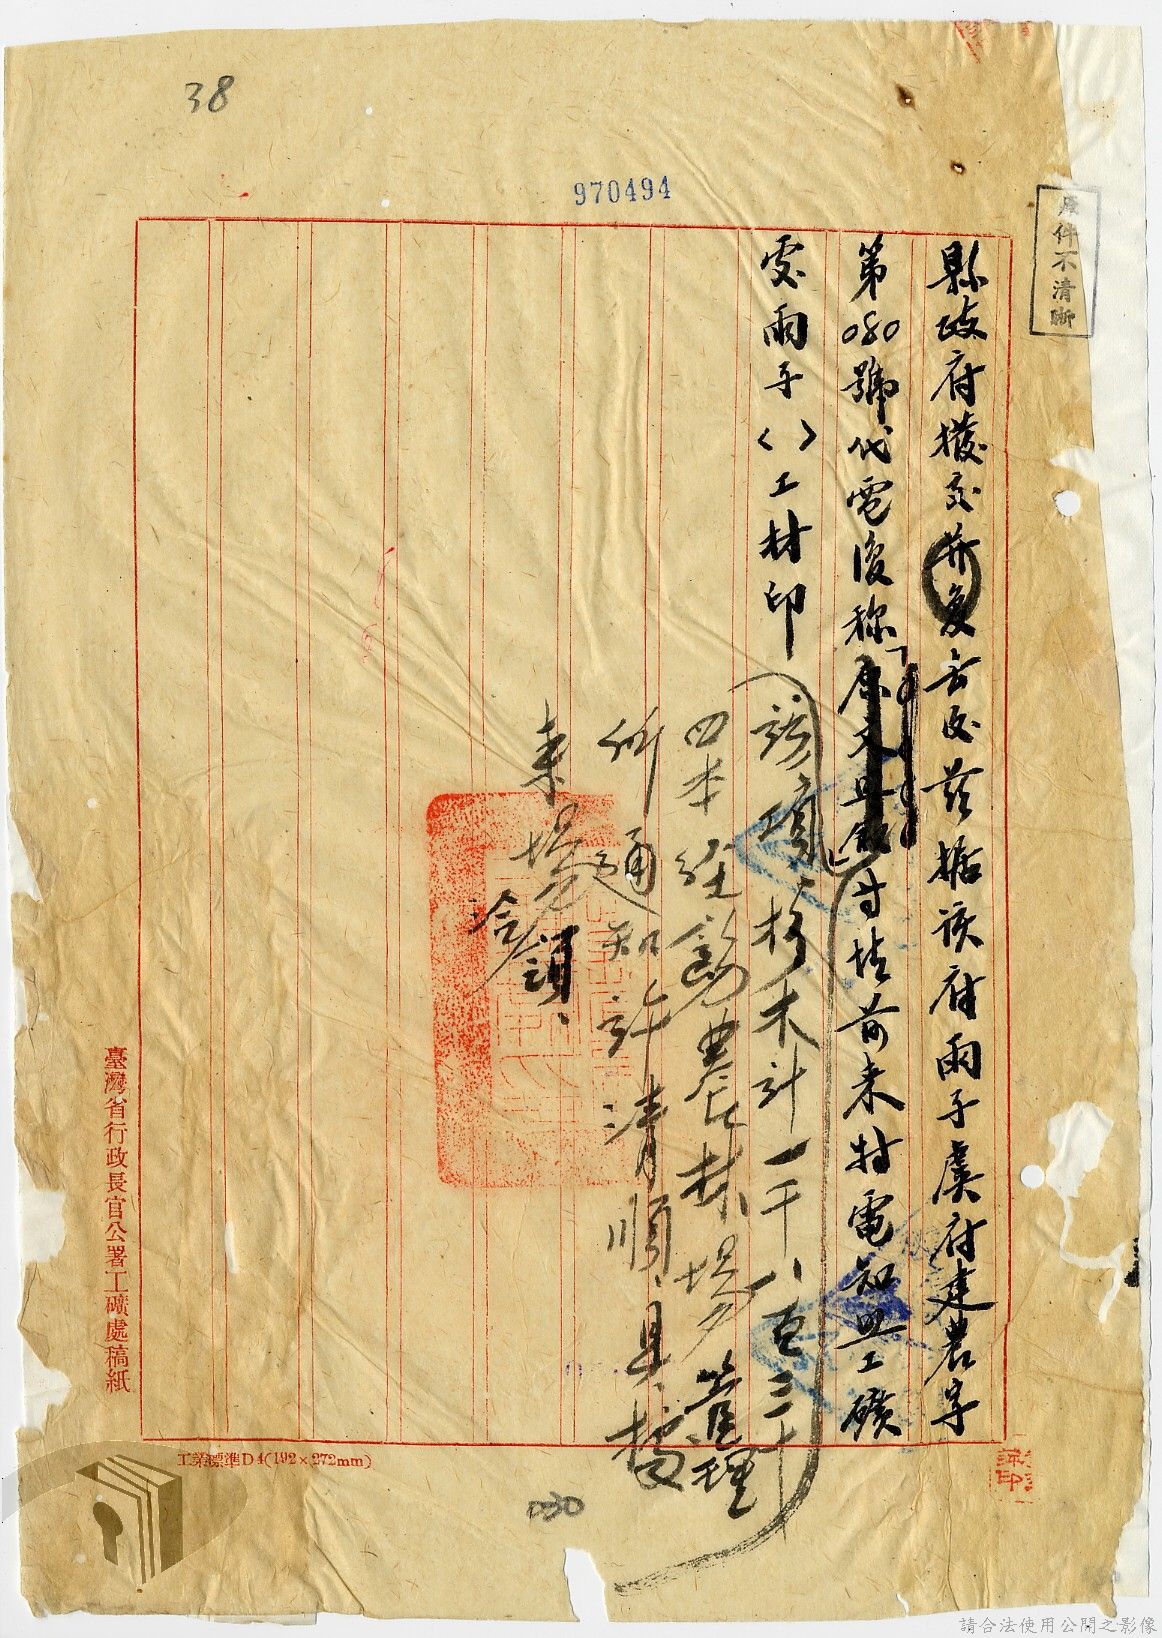 38
970494
原件不清晰
縣政府撥交并復去后茲據該府雨子虞府建農字
第080號代電復称「原文照敘」等情前來特電知照工礦
處雨子〈 〉工材印
該項杉木計一千八百三十
四本經勤農林場管理
所通知許清順具據
來場洽領、
臺灣省行政長官公署工礦處稿紙
工業標準D4(192×272mm)
030
請合法使用公開之影像